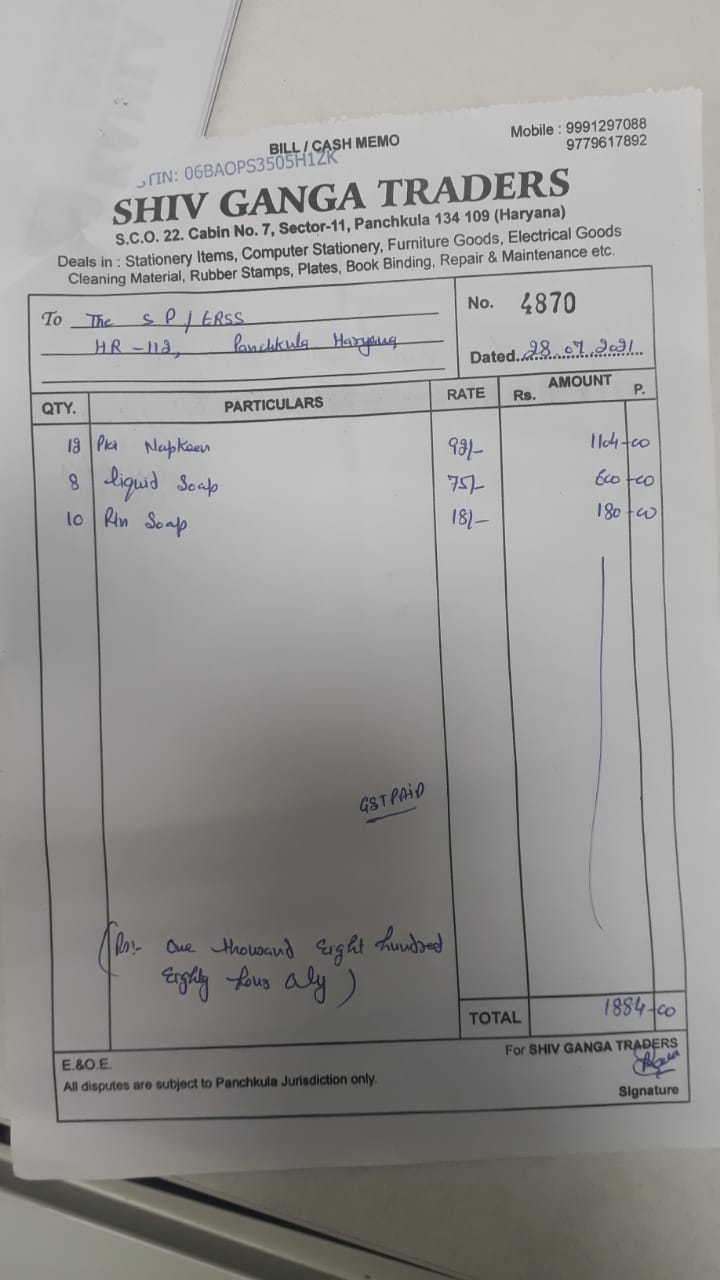 BILL / CASH MEMO
Mobile : 9991297088
9779617892
GSTIN: 06BAOPS3505H1ZK
SHIV GANGA TRADERS
S.C.O. 22. Cabin No. 7, Sector-11, Panchkula 134 109 (Haryana)
Deals in : Stationery Items, Computer Stationery, Furniture Goods, Electrical Goods
Cleaning Material, Rubber Stamps, Plates, Book Binding, Repair & Maintenance etc.
To The S P / ERSS
HR-112, Panchkula Haryana
No. 4870
Dated..28.07.2021...
QTY. PARTICULARS RATE AMOUNT
Rs. P.
12 Pkt Napkeen 92/- 1104-00
8 liquid Soap 75/- 600-00
10 Rin Soap 18/- 180-00
GST PAID
(Rs:- One thousand Eight hundred
Eighty four only)
TOTAL 1884-00
E.&O.E.
For SHIV GANGA TRADERS
All disputes are subject to Panchkula Jurisdiction only.
Signature